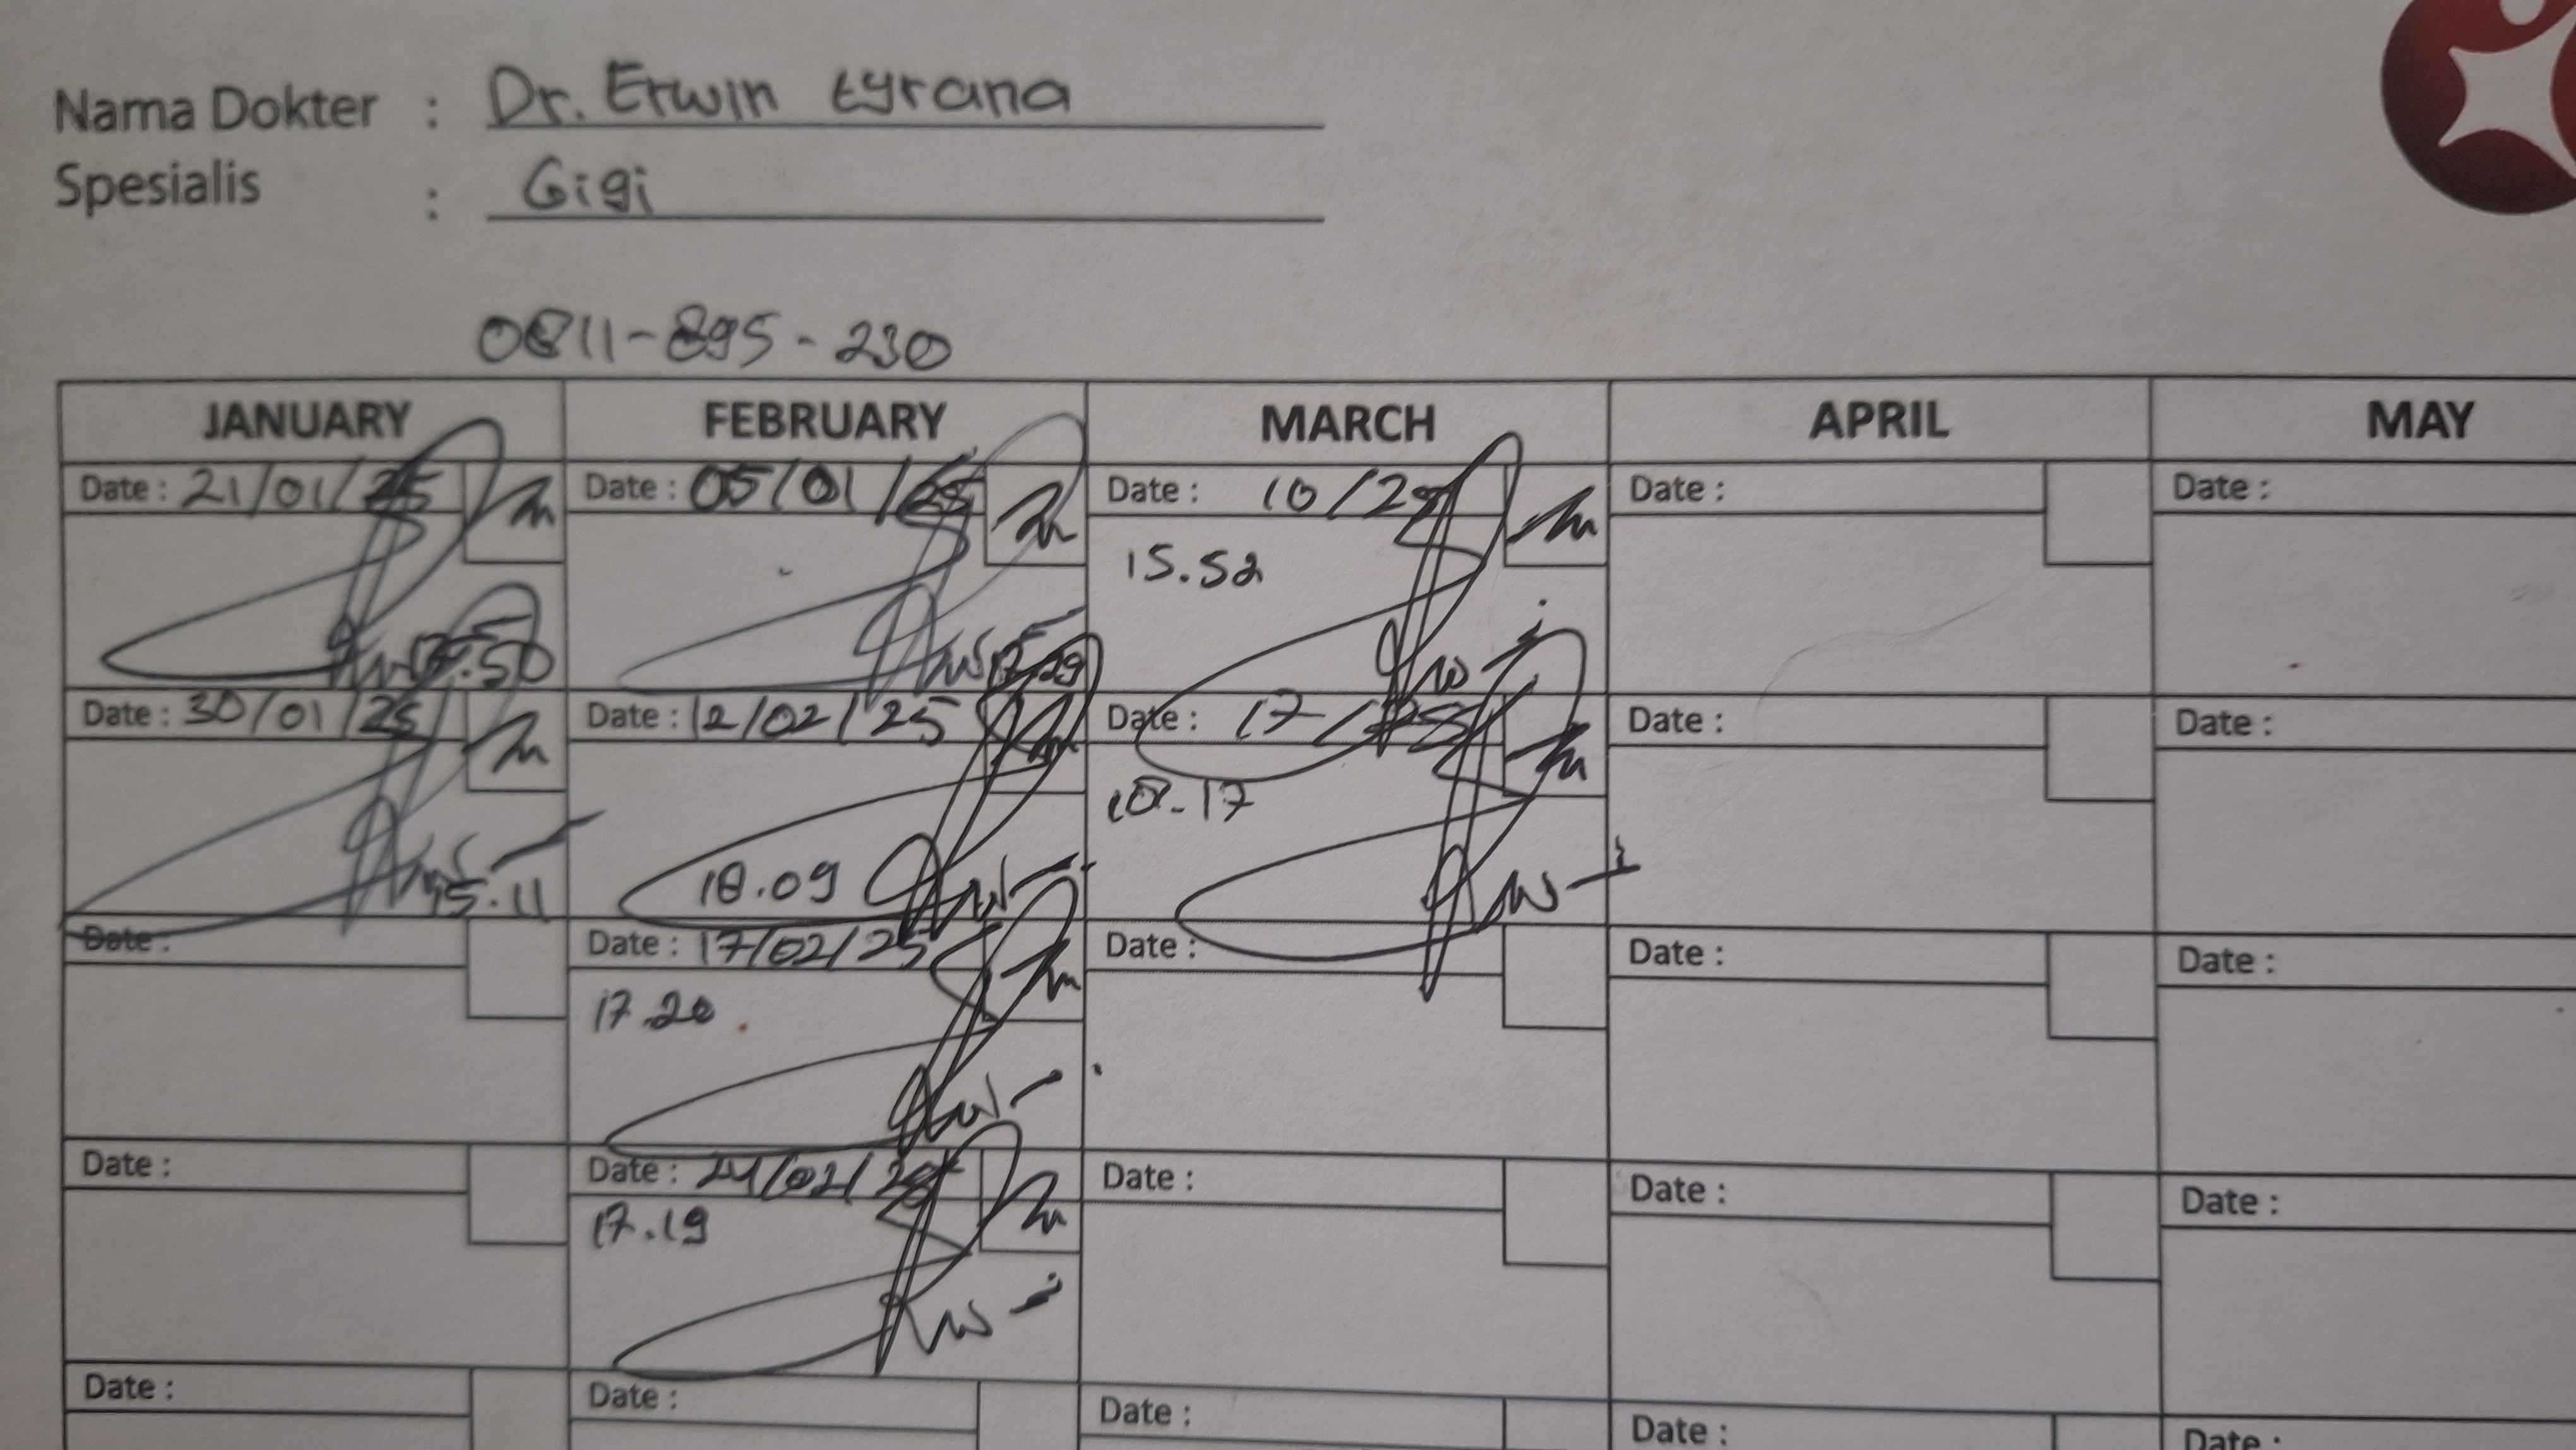 Nama Dokter : Dr. Erwin tyrana
Spesialis : Gigi
0811-895-230
JANUARY FEBRUARY MARCH APRIL MAY
Date : 21/01/25 Date : 05/01/25 Date : 10/25 Date : Date :
15.52
.50 17.29
Date : 30/01/25 Date : 12/02/25 Date : 17/25 Date : Date :
18.17
15.11 18.09
Date : Date : 17/02/25 Date : Date : Date :
17.20
Date : Date : 24/02/25 Date : Date : Date :
17.19
Date : Date : Date : Date : Date :